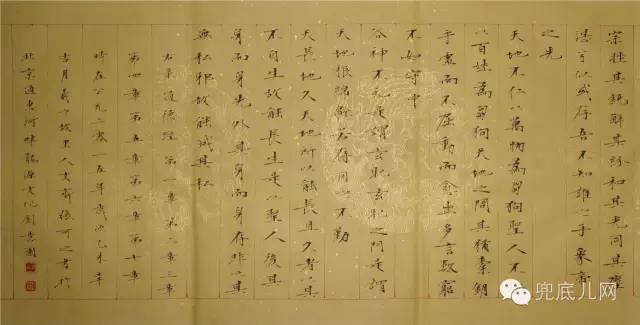 宗挫其銳解其紛和其光同其塵
湛兮似或存吾不知誰之子象帝
之先
天地不仁以萬物為芻狗聖人不
以百姓為芻狗天地之間其猶橐籥
乎虛而不屈動而愈出多言數窮
不如守中
谷神不死是謂玄牝玄牝之門是謂
天地根綿綿若存用之不勤
天長地久天地所以能長且久者以其
不自生故能長生是以聖人後其
身而身先外其身而身存非以其
無私邪故能成其私
道德經第一章第二章三章
第四章第五章第六章第七章
時在公元二零一五年歲次乙未年
吉月故里人文齋張可之書於
北京通惠河畔龍源文化創意園
兜底儿网